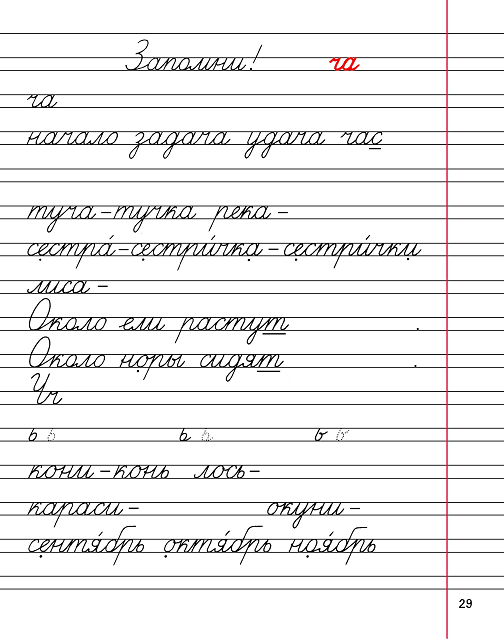 Запомни! ча
ча
начало задача удача час
туча – тучка река –
сестра́ – сестри́чка – сестри́чки
лиса –
Около ели растут .
Около норы сидят .
Чч
ь ь ь ь ь ь
кони – конь лось –
караси – окуни –
сентя́брь октя́брь ноя́брь
29